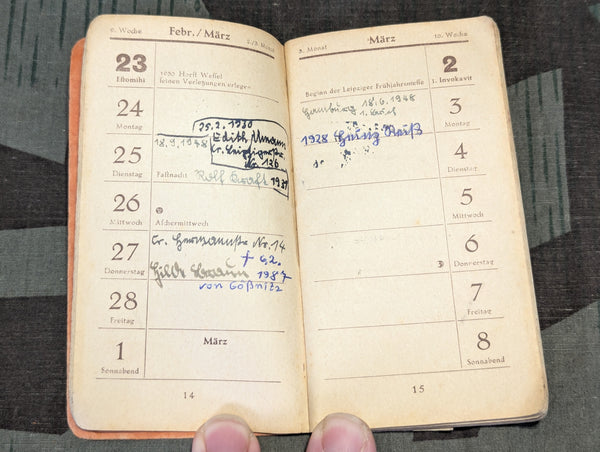 9. Woche Febr./März 2./3. Monat
23
Estomihi
1930 Horst Wessel
seinen Verletzungen erlegen
24
Montag
25.2.1930
Edith
Cr. Leipzigerstr.
Nr. 126
25
Dienstag
18.9.1948
Fastnacht Rolf 1931
26
Mittwoch
Aschermittwoch
27
Donnerstag
Cr. Hermannstr. Nr. 14
† 62.
Hilde Braun 1927
von Gößnitz
28
Freitag
1
Sonnabend
März
14
3. Monat März 10. Woche
Beginn der Leipziger Frühjahrsmesse
2
1. Invokavit
Hamburg 18.6.1948
3
Montag
1928 Heinz Reiß
4
Dienstag
5
Mittwoch
6
Donnerstag
7
Freitag
8
Sonnabend
15